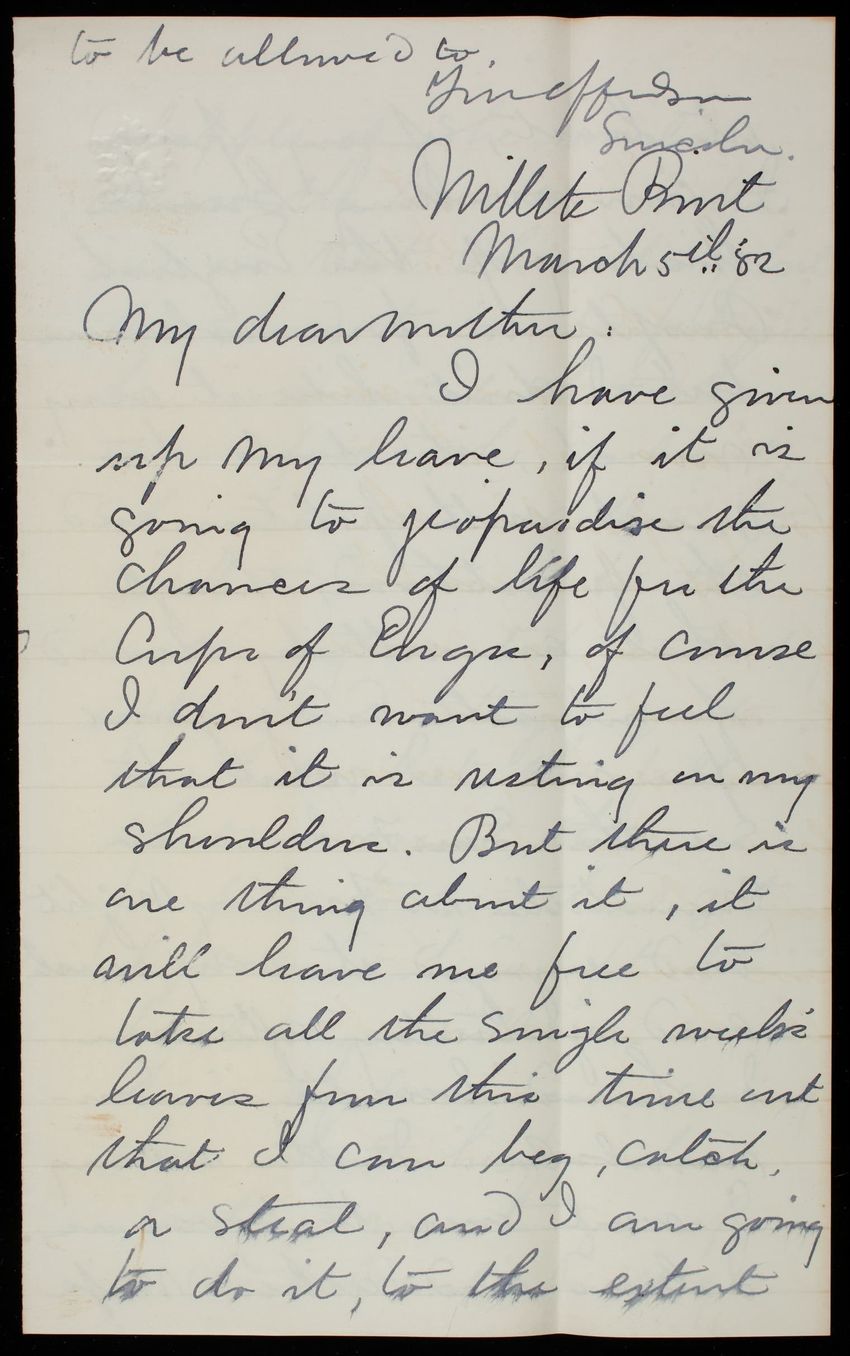 to be allowed to.
Your aff. son
Lincoln.
Willets Point
March 5th '82
My dear mother:
I have given
up my leave, if it is
going to jeopardise the
chances of life for the
Corps of Engrs, of course
I don't want to feel
that it is resting on my
shoulders. But there is
one thing about it, it
will leave me free to
take all the single week's
leaves from this time out
that I can beg, catch,
or steal, and I am going
to do it, to the extent